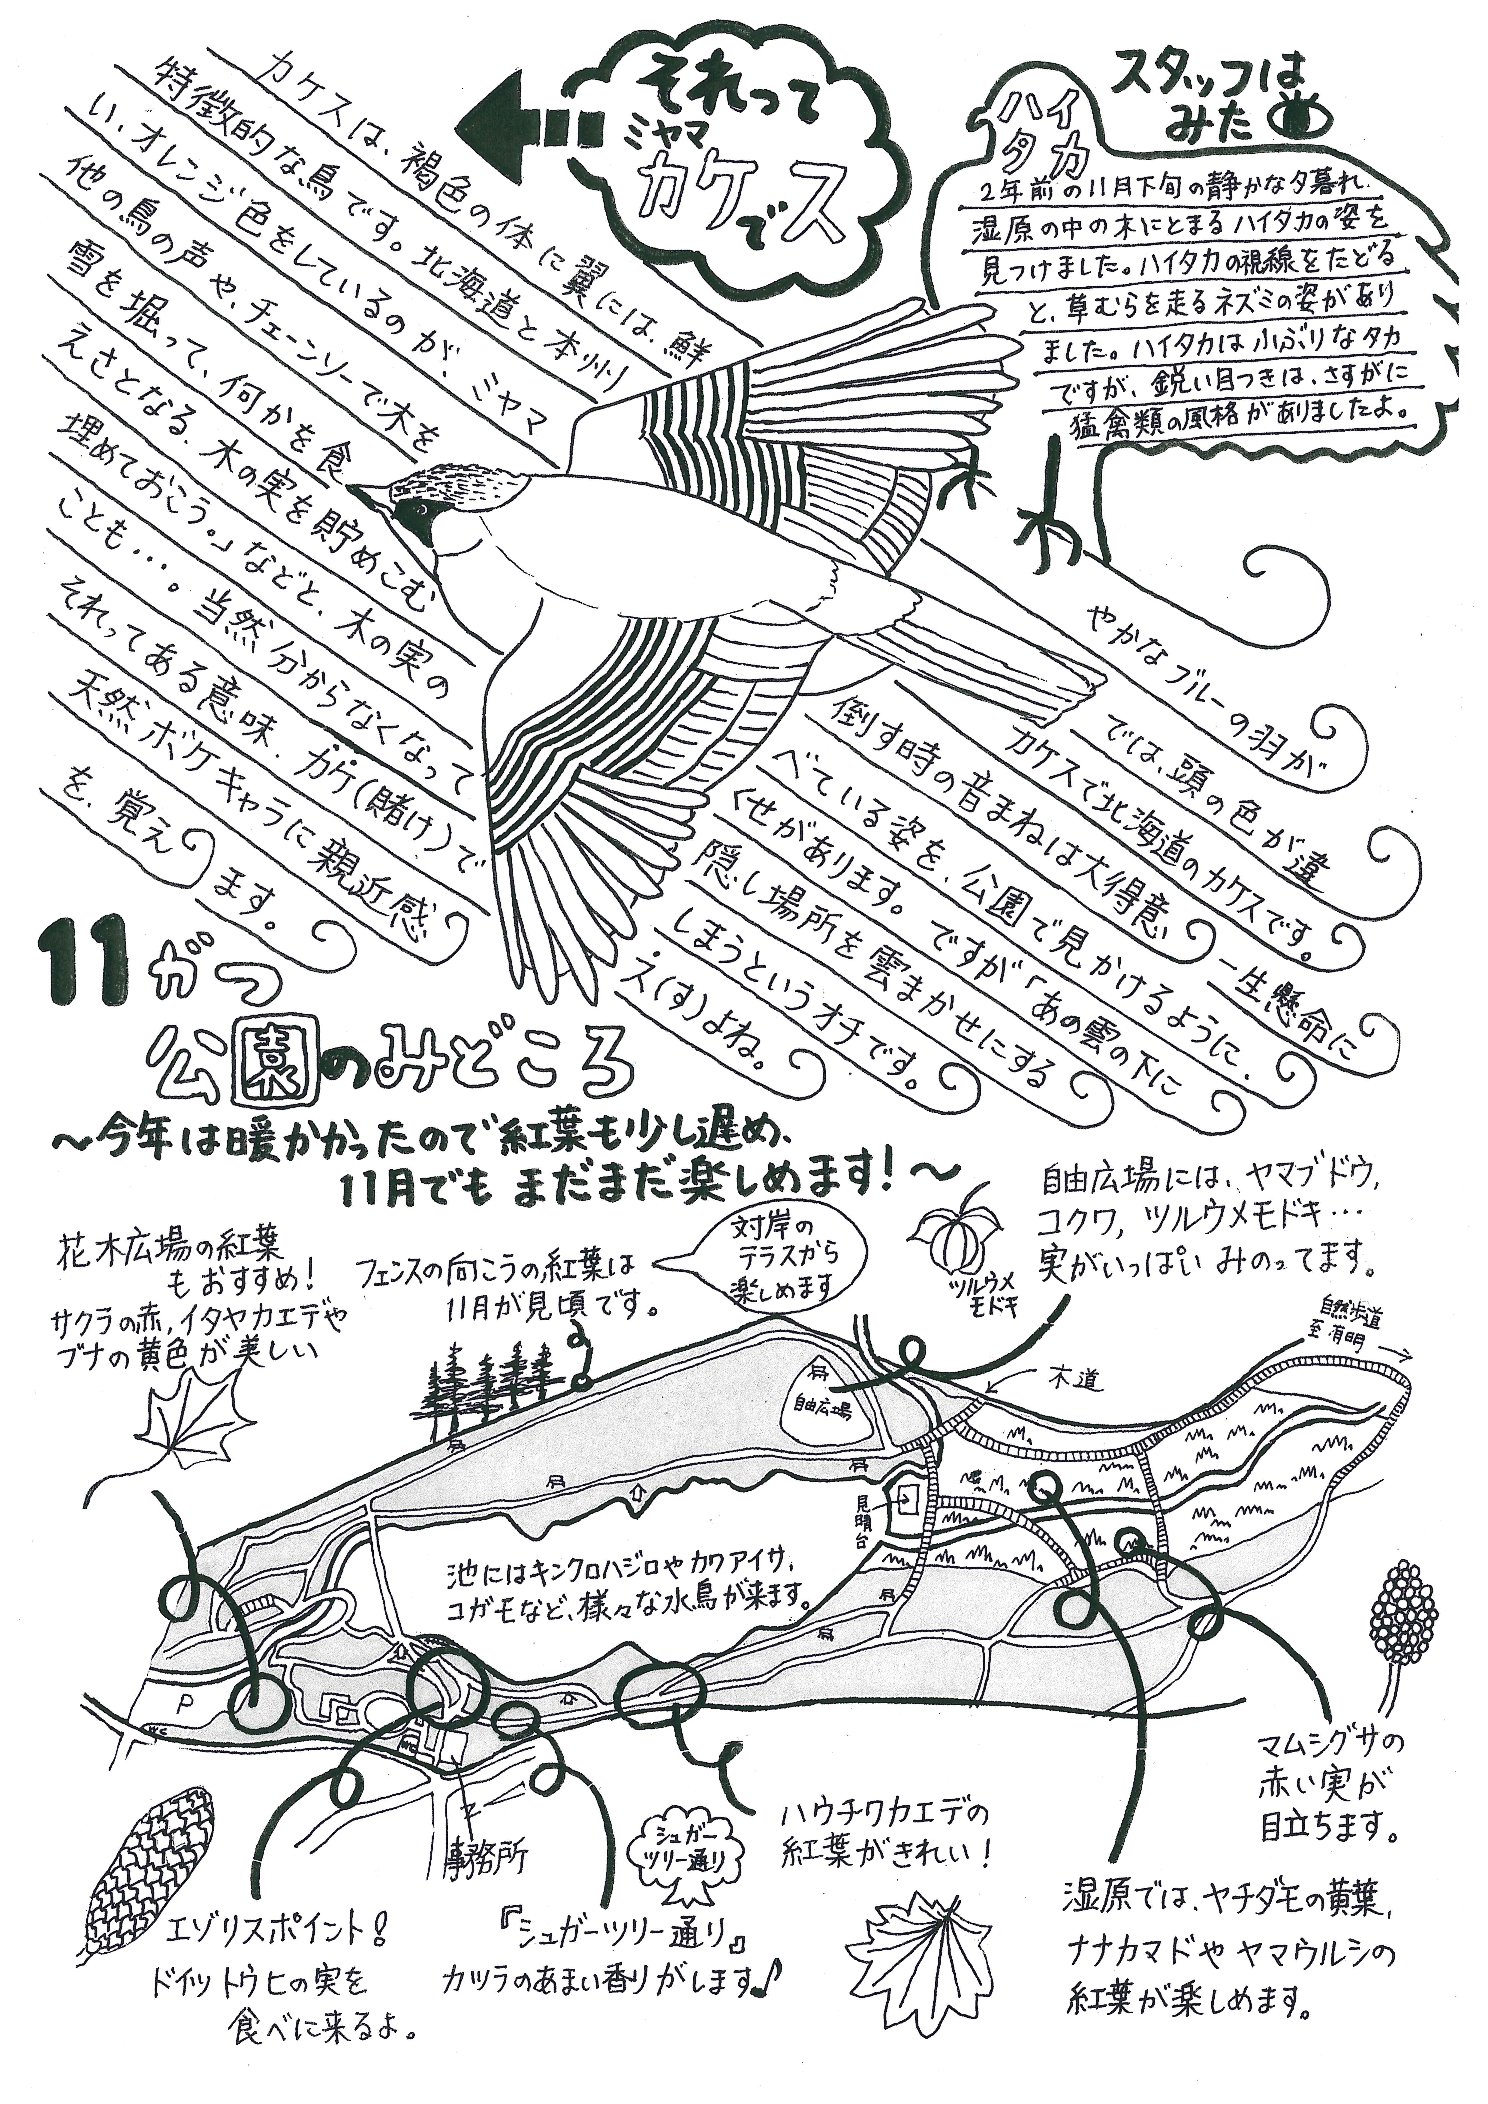 それって
ミヤマ
カケス
で
カケスは、褐色の体に翼には、鮮やかなブルーの羽が
特徴的な鳥です。北海道と本州では、頭の色が違
い、オレンジ色をしているのが、ミヤマカケスで北海道のカケスです。
他の鳥の声や、チェーンソーで木を倒す時の音まねは大得意 一生懸命に
雪を堀って、何かを食べている姿を、公園で見かけるように、
えさとなる、木の実を貯めこむくせがあります。ですが「あの雲の下に
埋めておこう。」などと、木の実の隠し場所を雲まかせにする
ことも…。当然分からなくなってしまうというオチです。
それってある意味、カケ(賭け)でス(す)よね。
天然ボケキャラに親近感
を、覚えます。
スタッフは
みた
ハイタカ
2年前の11月下旬の静かな夕暮れ、
湿原の中の木にとまるハイタカの姿を
見つけました。ハイタカの視線をたどる
と、草むらを走るネズミの姿があり
ました。ハイタカは小ぶりなタカ
ですが、鋭い目つきは、さすがに
猛禽類の風格がありましたよ。
11がつ
公園のみどころ
～今年は暖かかったので紅葉も少し遅め、
11月でもまだまだ楽しめます！～
花木広場の紅葉
もおすすめ！
サクラの赤，イタヤカエデや
ブナの黄色が美しい
フェンスの向こうの紅葉は
11月が見頃です。
対岸の
テラスから
楽しめます
ツルウメ
モドキ
自由広場には、ヤマブドウ，
コクワ，ツルウメモドキ…
実がいっぱいみのってます。
自然歩道
至 有明
木道
自由広場
見晴台
池にはキンクロハジロやカワアイサ、
コガモなど、様々な水鳥が来ます。
P
WC
WC
事務所
エゾリスポイント！
ドイツトウヒの実を
食べに来るよ。
シュガー
ツリー通り
『シュガーツリー通り』
カツラのあまい香りがします♪
ハウチワカエデの
紅葉がきれい！
マムシグサの
赤い実が
目立ちます。
湿原では、ヤチダモの黄葉，
ナナカマドやヤマウルシの
紅葉が楽しめます。